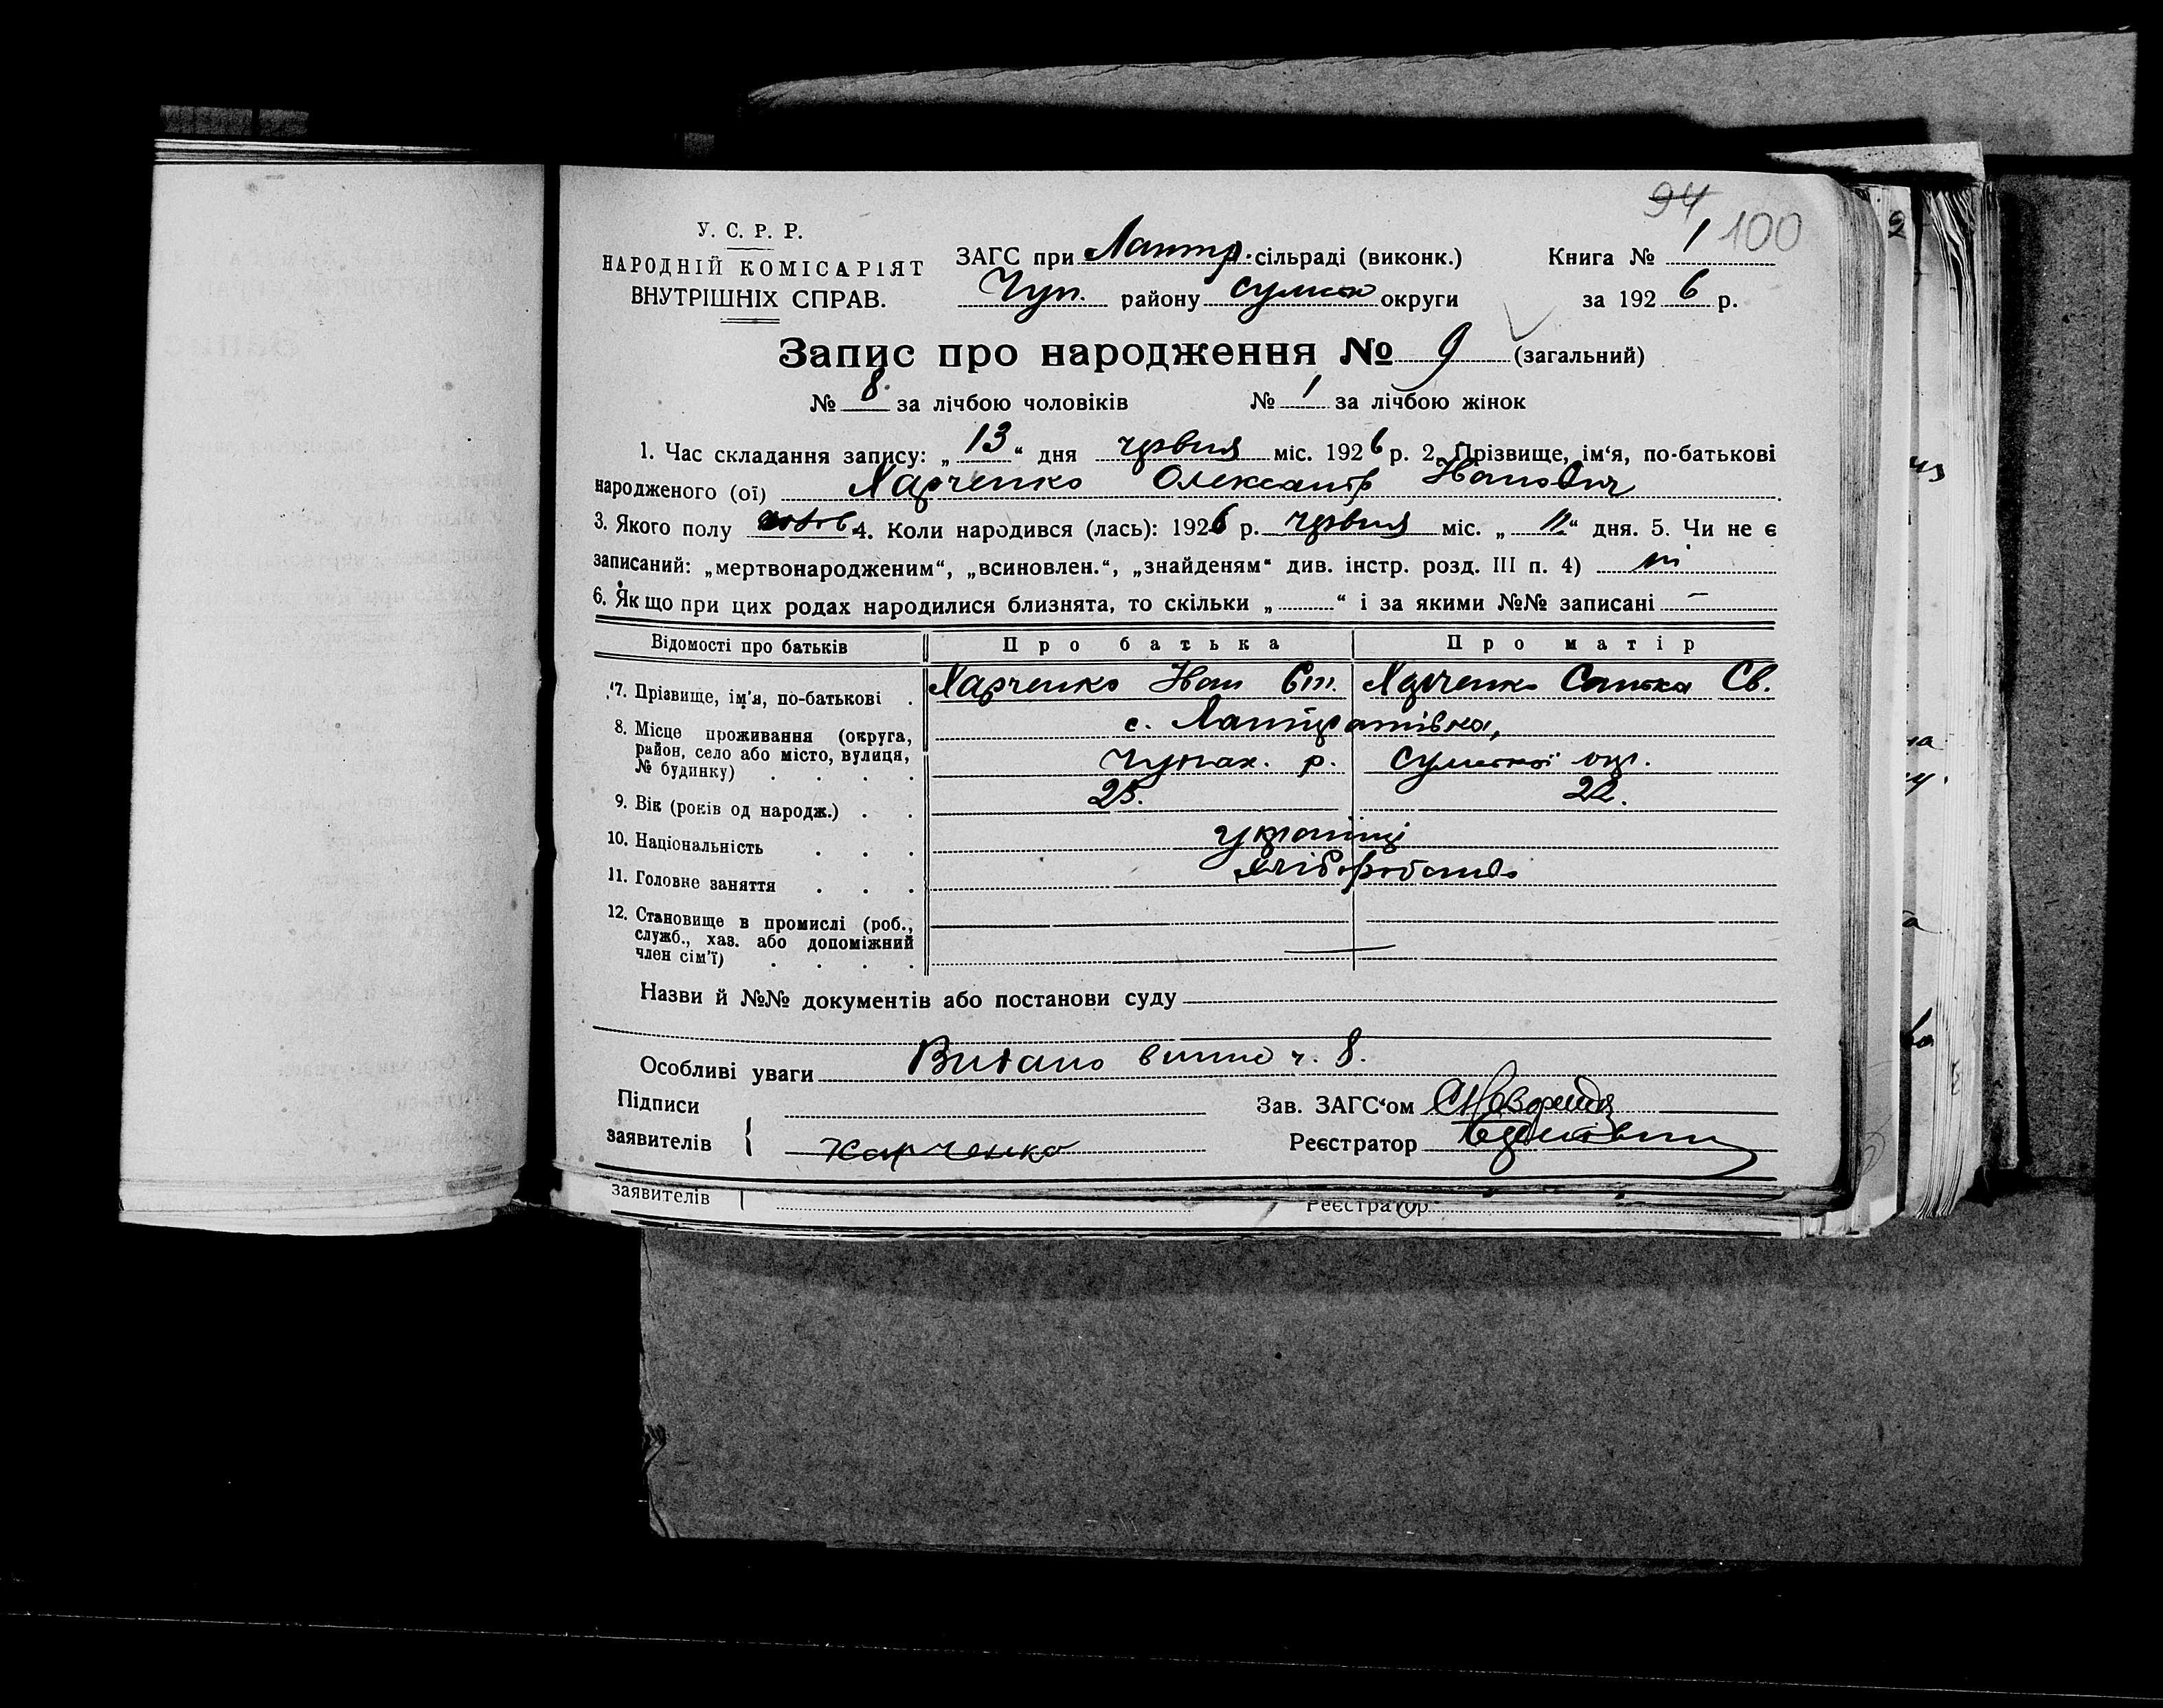 94 100
У. С. Р. Р.
НАРОДНІЙ КОМІСАРІЯТ
ВНУТРІШНІХ СПРАВ.
ЗАГС при Лантр. сільраді (виконк.)
Чуп. району Сумськ округи
Книга № 1
за 1926 р.
Запис про народження № 9 (загальний)
№ 8 за лічбою чоловіків № 1 за лічбою жінок
1. Час складання запису: „13“ дня червня міс. 1926 р. 2. Прізвище, ім‘я, по-батькові
народженого (ої) Харченко Олександр Йанович
3. Якого полу 4. Коли народився (лась): 1926 р. червня міс. „11“ дня. 5. Чи не є
записаний: „мертвонародженим“, „всиновлен.“, „знайденям“ див. інстр. розд. III п. 4) ні
6. Якщо при цих родах народилися близнята, то скільки „ “ і за якими №№ записані —
Відомості про батьків Про батька Про матір
7. Прізвище, ім'я, по-батькові . Харченко Йан Харченко Св.
8. Місце проживання (округа, район, село або місто, вулиця, № будинку) . . . . с. Лантратівка,
Чупах. р. Сумської окр.
9. Вік (років од народж.) . . 25. 22.
10. Національність . . . українці
11. Головне заняття . . . хліборобство
12. Становище в промислі (роб., служб., хаз. або допоміжний член сім'ї) . . . . —
Назви й №№ документів або постанови суду
Особливі уваги Видано ч. 8.
Підписи
заявителів { Харченко
Зав. ЗАГС‘ом
Реєстратор
заявителів
Реєстратор